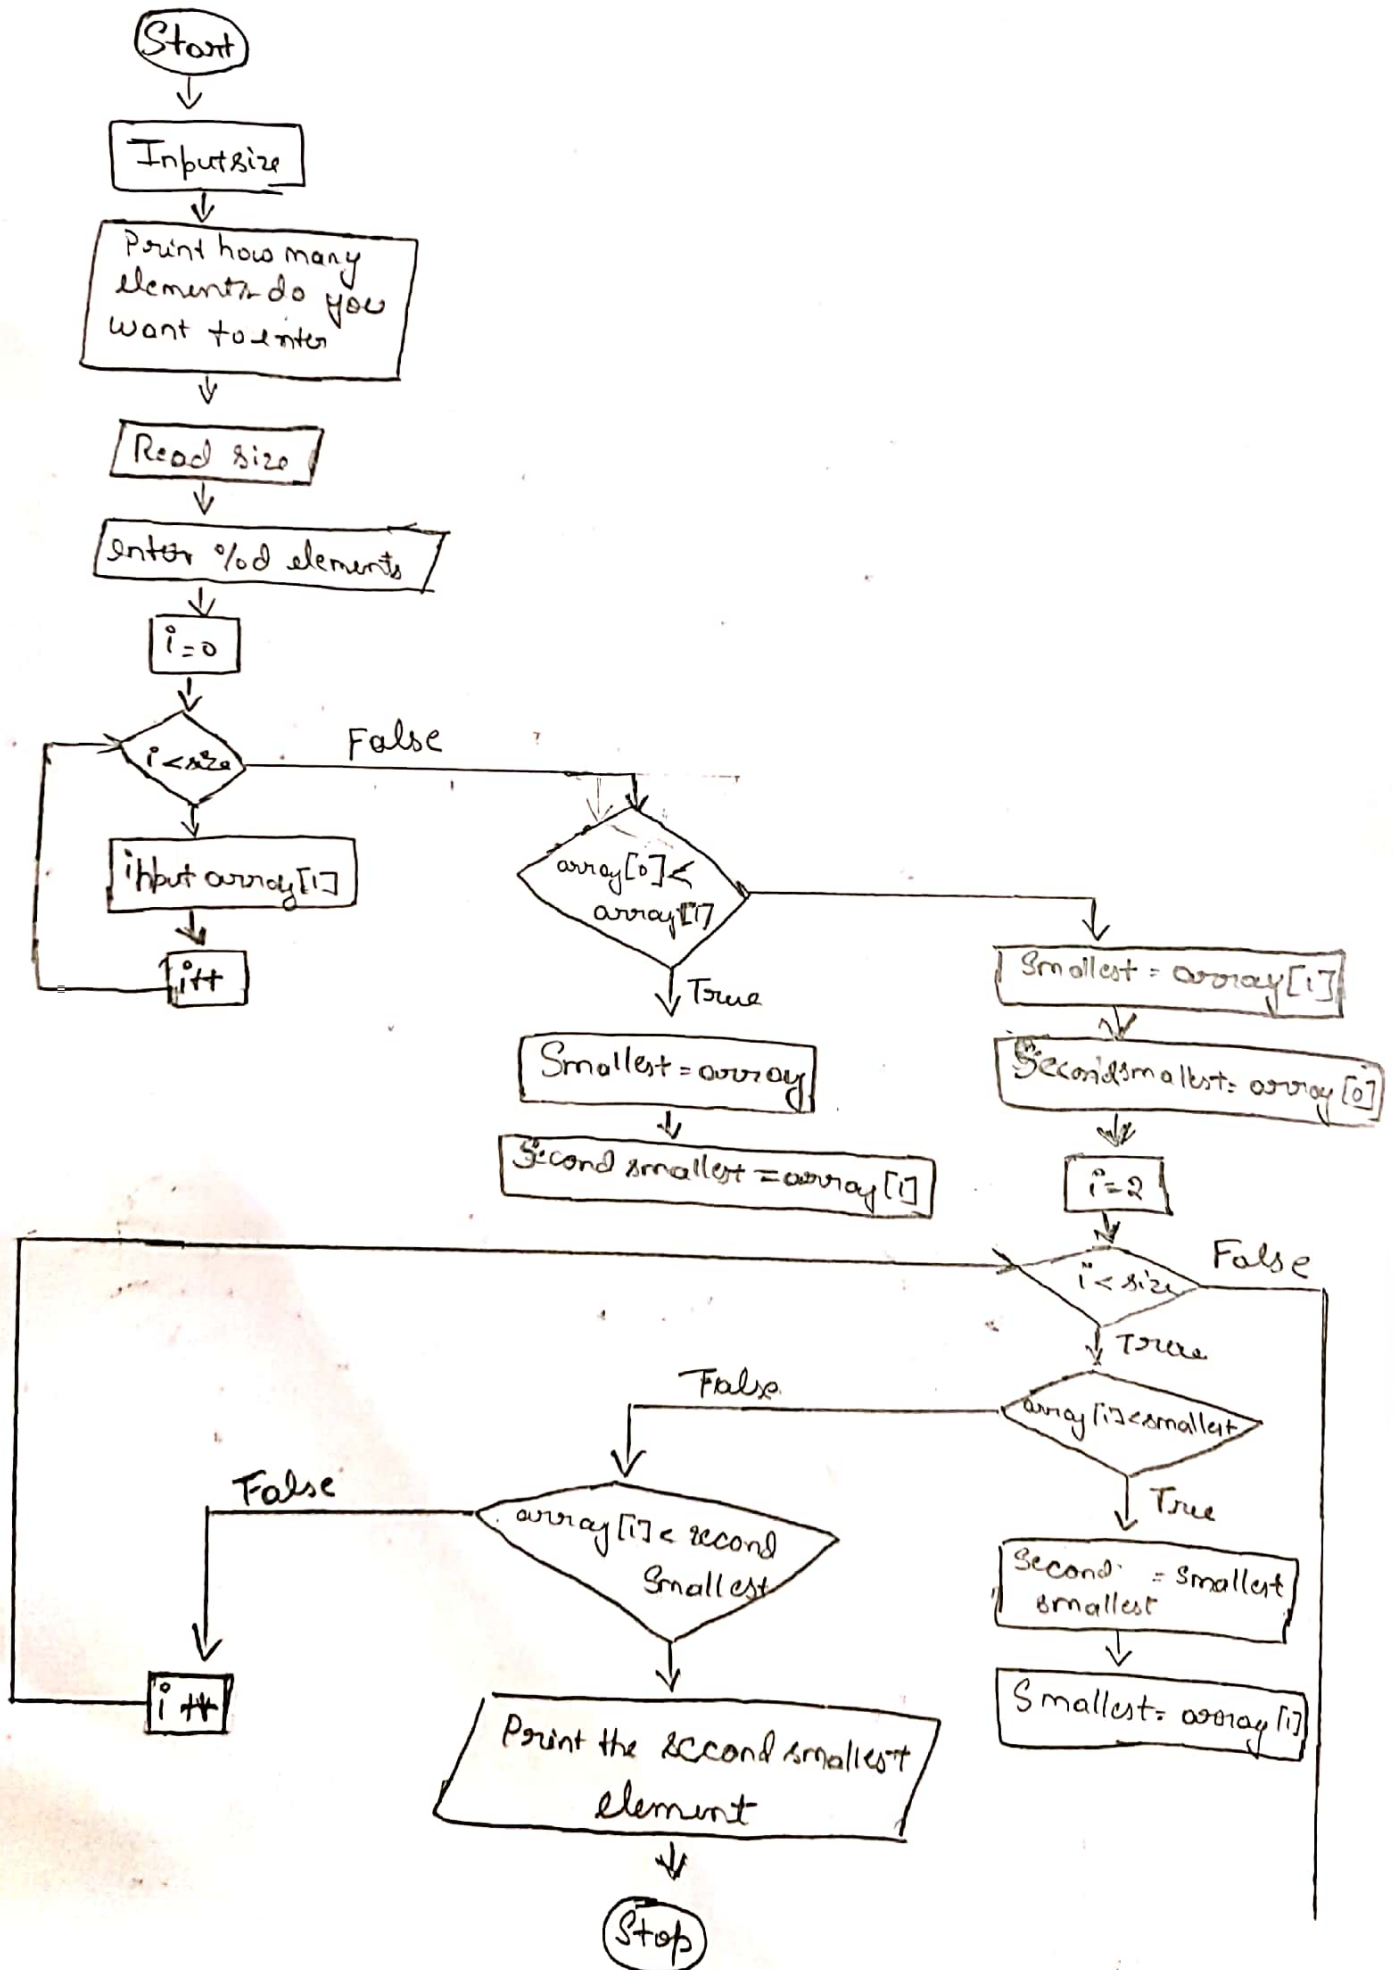 Start
Input size
Print how many
elements do you
want to enter
Read size
enter %d elements
i=0
i<size
False
input array[i]
i++
array[0]<
array[1]
True
Smallest = array
Second smallest = array[1]
Smallest = array[1]
Second smallest = array[0]
i=2
i<size
False
True
array[i]<smallest
False
True
Second = smallest
smallest
Smallest = array[i]
array[i] < second
Smallest
False
i++
Print the second smallest
element
Stop